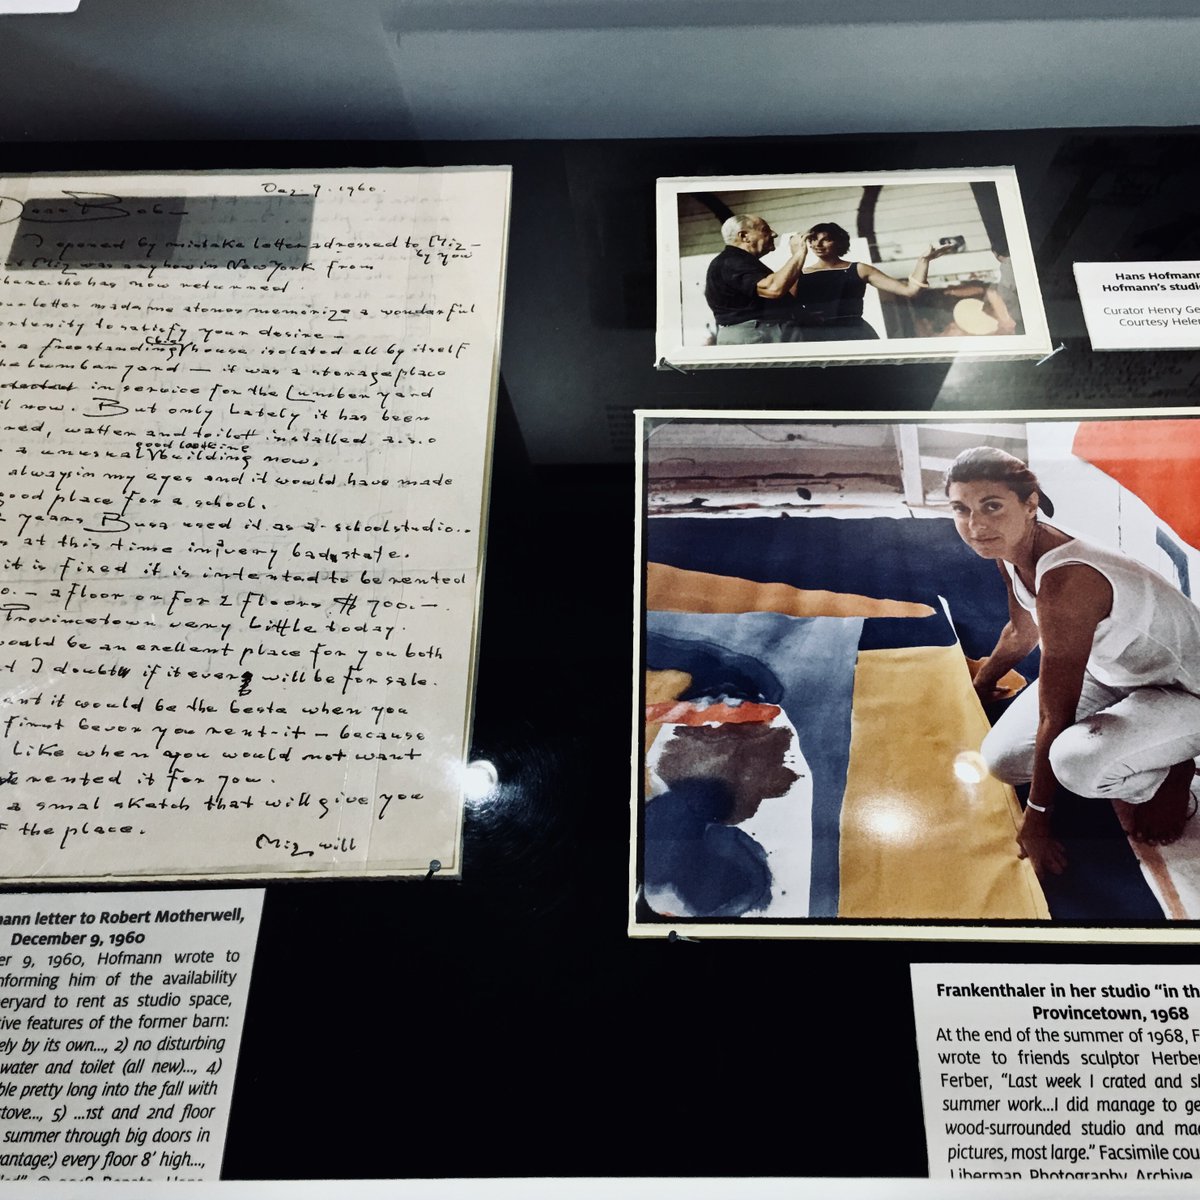 Dez. 9. 1960.
Dear Bob —
I opened by mistake letter adressed to Miz —
by you
Miz was anyhow in New York from
she has now returned.
letter made me atonos memorize a wonderful
to satisfy your desire —
a freestanding (big) house isolated all by itself
lumberyard — it was a storage place
in service for the Lumberyard
now. But only lately it has been
, watter and toilett installed a.s.o
good looking
a unusual building now.
always in my eyes and it would have made
good place for a school.
years Busa used it as a schoolstudio..
at this time in very bad state.
it is fixed it is intended to be rented
— a floor or for 2 floors $ 700.—.
Provincetown very little today.
would be an exellent place for you both
I doubt if it ever will be for sale.
it would be the beste when you
first bevor you rent-it — because
like when you would not want
rented it for you.
a smal sketch that will give you
the place.
Miz will
mann letter to Robert Motherwell,
December 9, 1960
er 9, 1960, Hofmann wrote to
nforming him of the availability
eryard to rent as studio space,
tive features of the former barn:
ely by its own..., 2) no disturbing
water and toilet (all new)..., 4)
ble pretty long into the fall with
stove..., 5) ...1st and 2nd floor
summer through big doors in
vantage:) every floor 8' high...,
Hans Hofmann
Hofmann's studio
Curator Henry Ge
Courtesy Helen
Frankenthaler in her studio "in th
Provincetown, 1968
At the end of the summer of 1968, F
wrote to friends sculptor Herber
Ferber, "Last week I crated and sh
summer work...I did manage to ge
wood-surrounded studio and mad
pictures, most large." Facsimile cou
Liberman Photography Archive